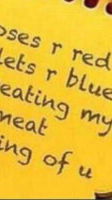 oses r red
lets r blue
eating my
meat
ing of u